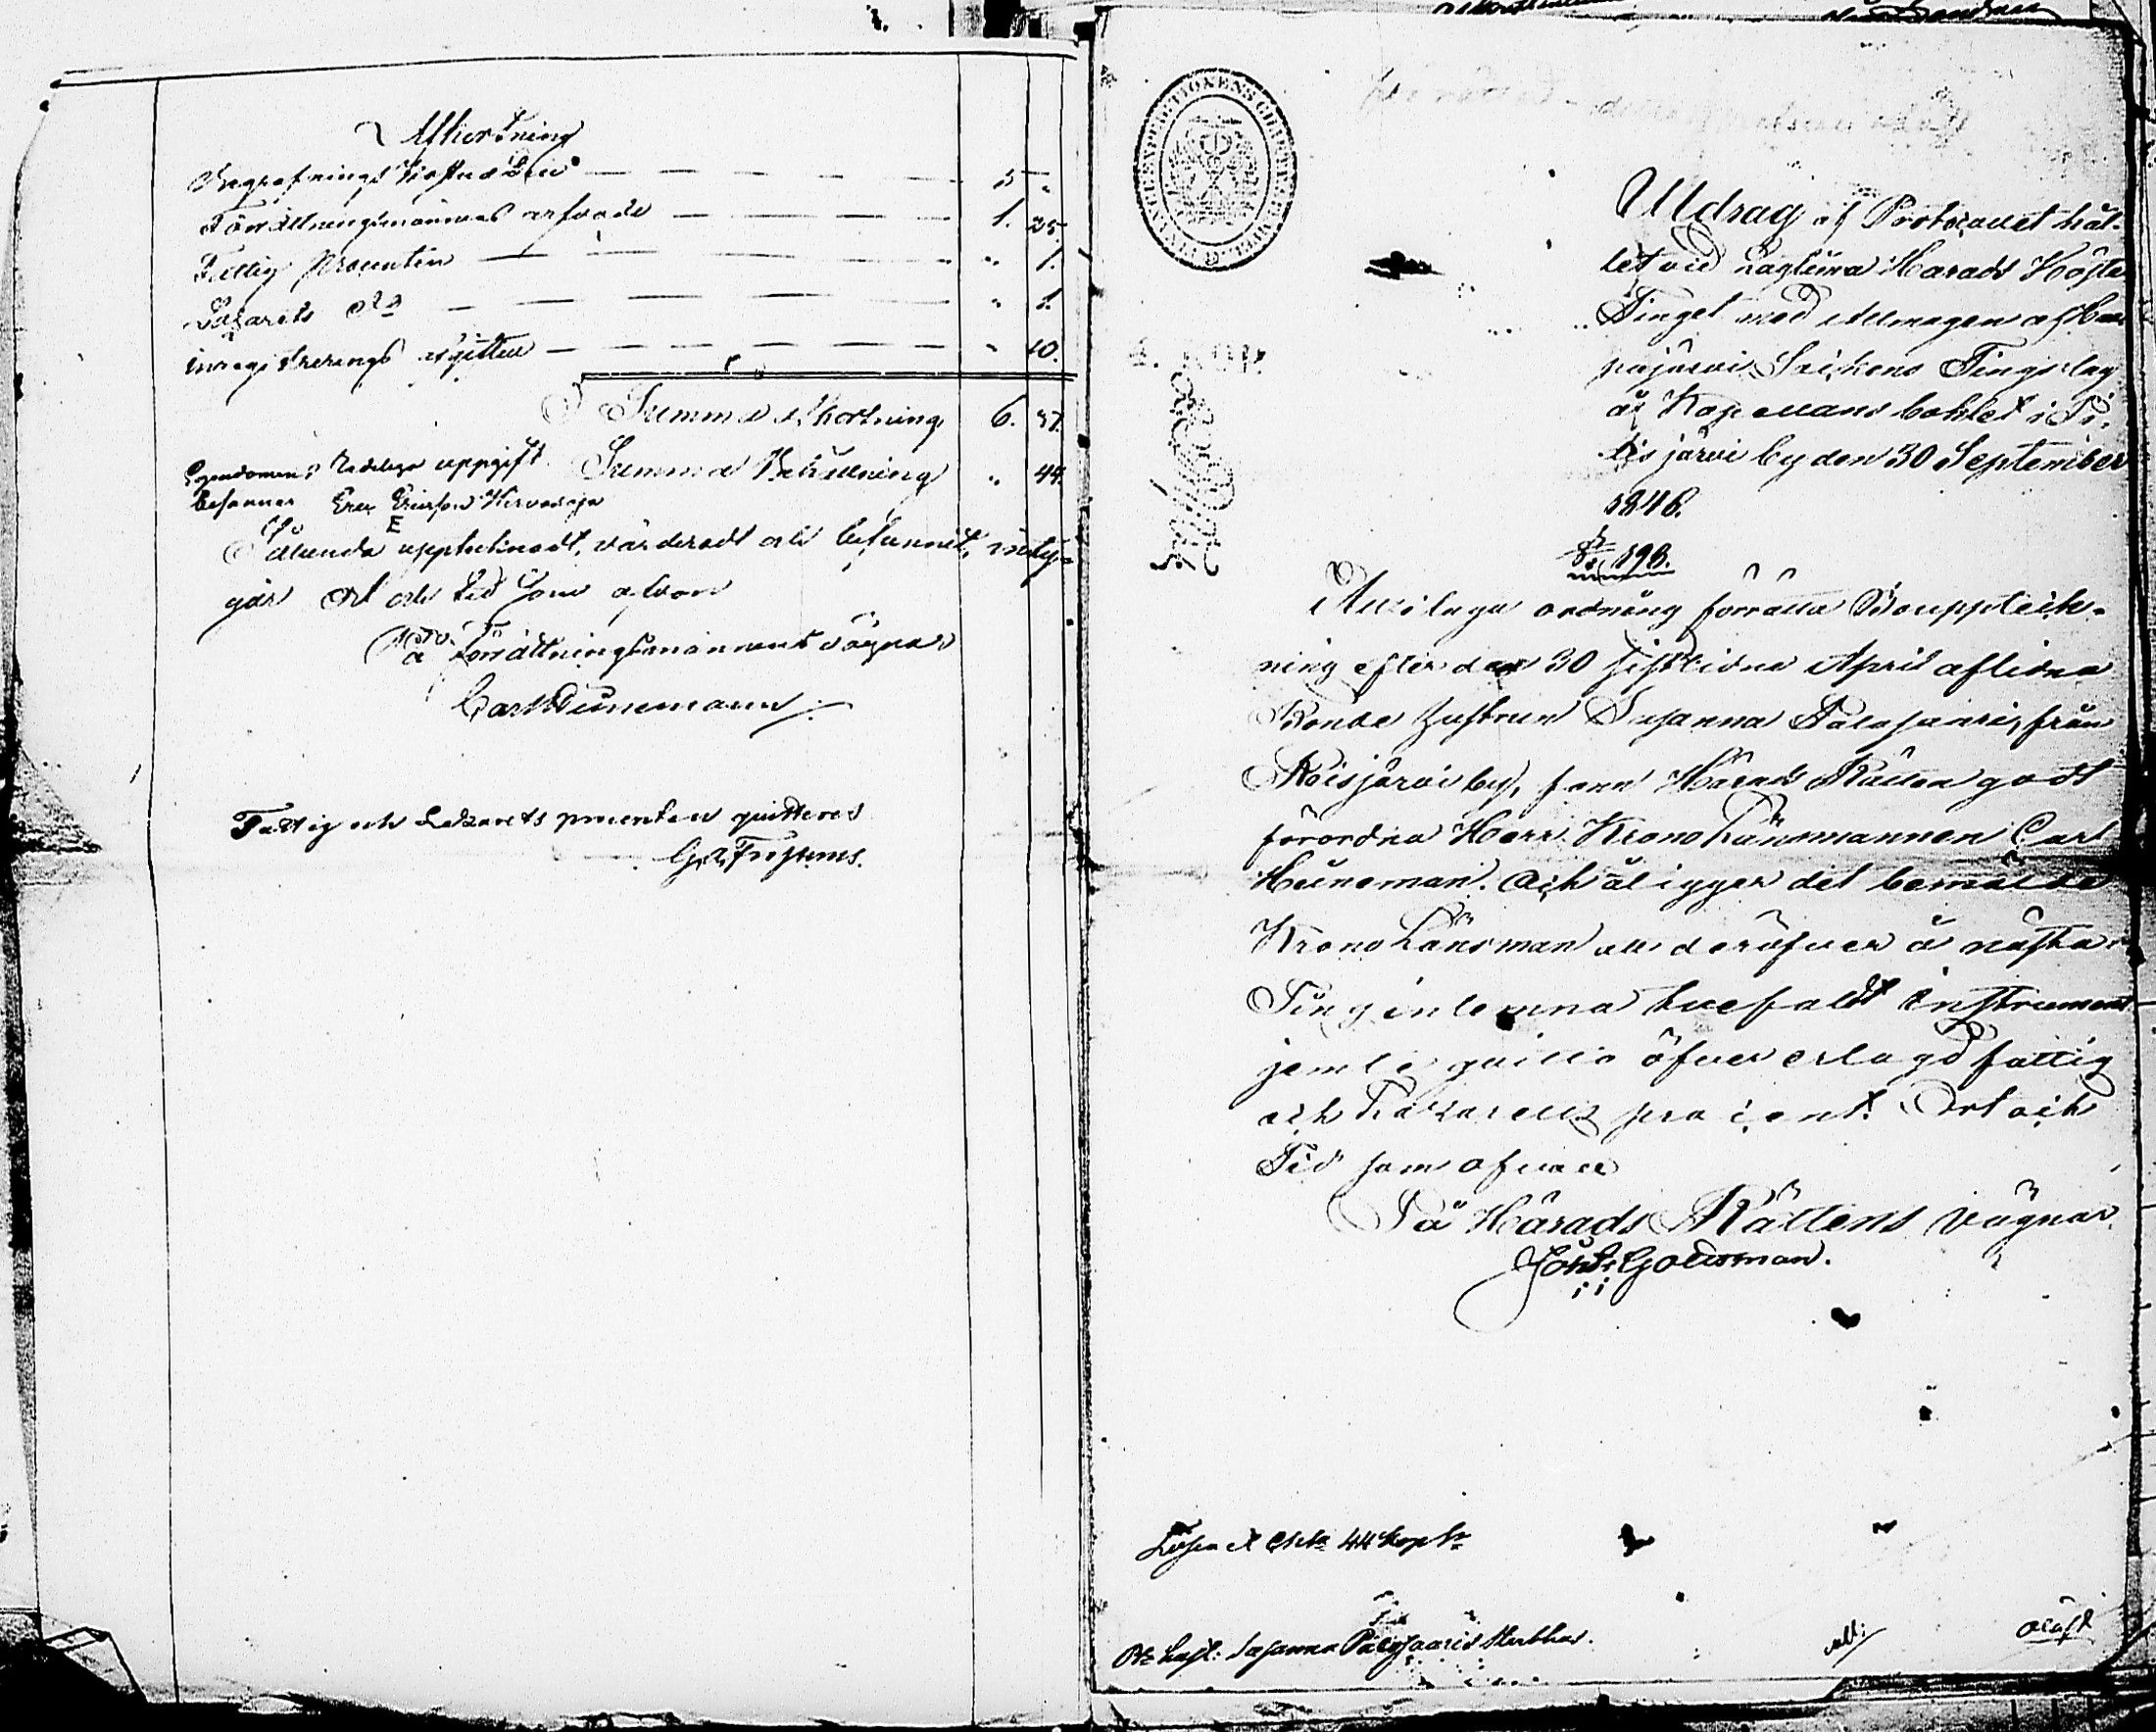 Afkortning
Begrafnings kostnaden — 5 "
Förrättningsmännens arfvode — 1. 25.
Fattig Procenten — " 1.
Lazarets d:o — " 1.
inregistrerings afgiften — " 10.
Summa Afkortning 6. 37.
Egendomens Redeliga uppgift Summa Behållning " 44.
besannar Eric Ericsson
Sålunda upptecknadt, värderadt och befunnit, intyga-
gär Ort och tid som ofvan
På förrättningsmannens vägnar
Carl Heinemann
Fattig och Lazarets procenten quitteras
Utdrag af Protocollet hål-
let vid Laglima Härads Höste
Tinget med Allmogen af
pajärvi Sockens Tingslag
å Kapellans bohlet i Pi-
tisjärvi by den 30 September
1846.
§ 198.
Att i laga ordning förrätta Bouppteck-
ning efter den 30 sistlidne April aflidna
Bonde hustrun Susanna Palosaari, från
by, fann Härads Rätten godt
förordna Herr Krono Länsmannen Carl
Heineman. Och åligger det bemälde
Krono Länsman att deröfver å nästa
Ting inlemna tvefaldt instrument
jemte qvitto öfver erlagd fattig
och Lazaretts procent. Ort och
Tid som ofvan
På Härads Rättens vägnar
Joh: Goldsman.
Lösen et Ch:ta 44 kop S:r
B:de hust: Susanna Palosaaris Sterbhus.